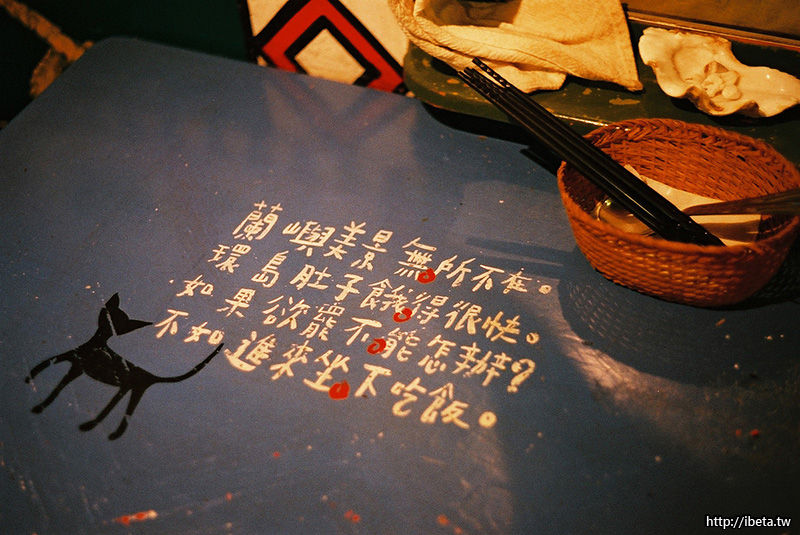 蘭嶼美景無所不在。
環島肚子餓得很快。
如果欲罷不能怎辦？
不如進來坐下吃飯。
http://ibeta.tw